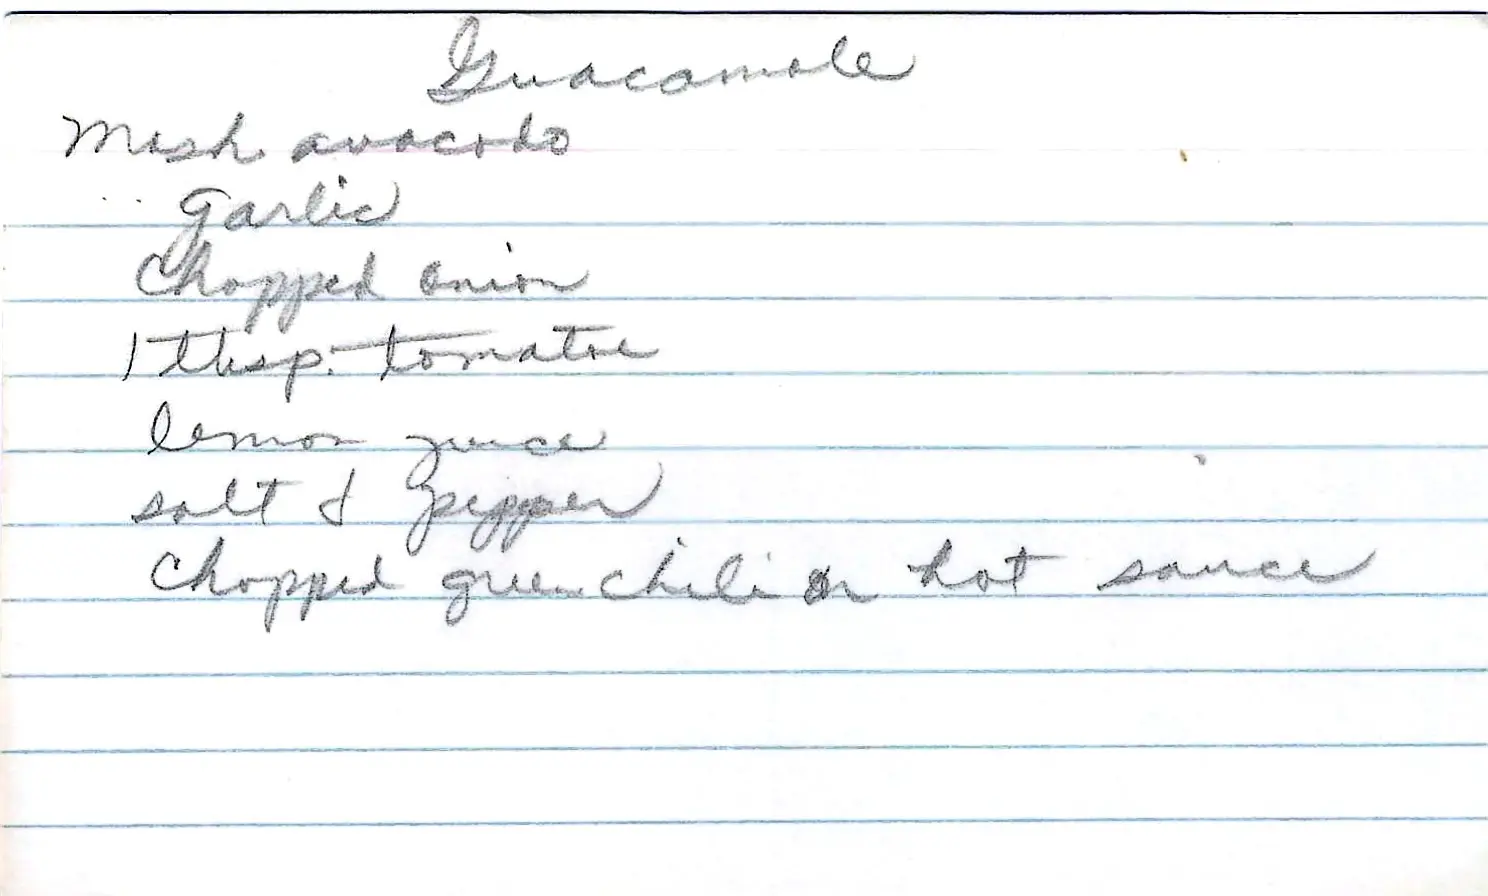 Guacamole
Mash avacodo
garlic
Chopped onion
1 tbsp. tomatoe
lemon juice
salt & pepper
Chopped green chili or hot sauce